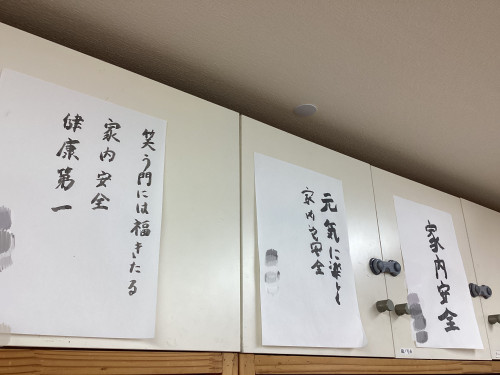 笑う門には福きたる
家内安全
健康第一
元気に楽しく
家内安全
家内安全